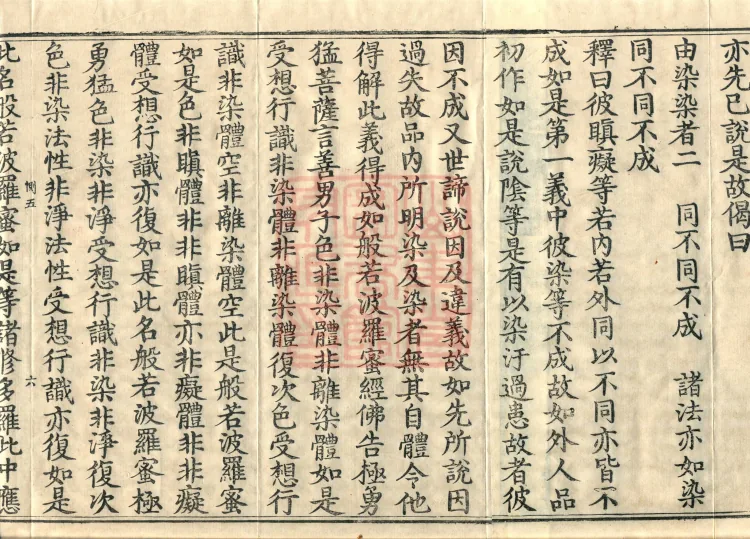 亦先已說是故偈曰
由染染者二 同不同不成 諸法亦如染
同不同不成
釋曰彼瞋癡等若內若外同以不同亦皆不
成如是第一義中彼染等不成故如外人品
初作如是說陰等是有以染汙過患故者彼
因不成又世諦說因及違義故如先所說因
過失故品內所明染及染者無其自體令他
得解此義得成如般若波羅蜜經佛告極勇
猛菩薩言善男子色非染體非離染體如是
受想行識非染體非離染體復次色受想行
識非染體空非離染體空此是般若波羅蜜
如是色非瞋體非非瞋體亦非癡體非非癡
體受想行識亦復如是此名般若波羅蜜極
勇猛色非染非淨受想行識非染非淨復次
色非染法性非淨法性受想行識亦復如是
惻五 六
此名般若波羅蜜如是等諸修多羅此中應